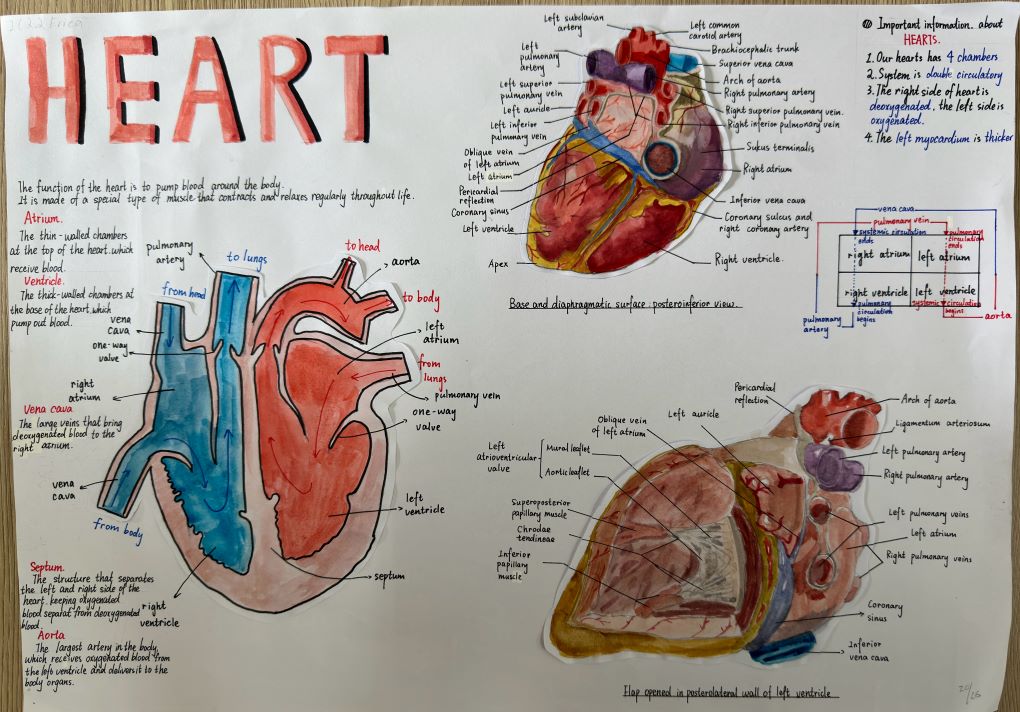 2022 Erica
HEART
The function of the heart is to pump blood around the body.
It is made of a special type of muscle that contracts and relaxes regularly throughout life.
Atrium.
The thin-walled chambers
at the top of the heart.which
receive blood.
Ventricle.
The thick-walled chambers at
the base of the heart,which
pump out blood.
Vena cava
The large veins that bring
deoxygenated blood to the
right atrium.
Septum.
The structure that separates
the left and right side of the
heart. keeping oxygenated
blood separat from deoxygenated
blood.
Aorta
The largest artery in the body,
which receives oxygenated blood from
the left ventricle and delivers it to the
body organs.
pulmonary
artery
to lungs
to head
aorta
from head
to body
vena
cava
one-way
valve
left
atrium
from
lungs
right
atrium
pulmonary vein
one-way
valve
vena
cava
from body
left
ventricle
septum
right
ventricle
Left subclavian
artery
Left common
carotid artery
Left
pulmonary
artery
Brachiocephalic trunk
Superior vena cava
Arch of aorta
Left superior
pulmonary vein
Right pulmonary artery
Left auricle
Right superior pulmonary vein.
Left inferior
pulmonary vein
Right inferior pulmonary vein
Oblique vein
of left atrium
Sukus terminalis
Left atrium
Right atrium
Pericardial
reflection
Inferior vena cava
Coronary sinus
Coronary sulcus and
right coronary artery
Left ventricle
Right ventricle.
Apex
Base and diaphragmatic surface: posteroinferior view.
Important information. about
HEARTS.
1. Our hearts has 4 chambers
2. System is double circulatory
3. The right side of heart is
deoxygenated, the left side is
oxygenated.
4. The left myocardium is thicker
vena cava
pulmonary vein
systemic circulation
ends
pulmonary
circulation
ends
right atrium
left atrium
right ventricle
left ventricle
pulmonary
circulation
begins
systemic circulation
begins
pulmonary
artery
aorta
Pericardial
reflection
Arch of aorta
Left auricle
Oblique vein
of left atrium
Ligamentum arteriosum
Left
atrioventricular
valve
Mural leaflet
Aortic leaflet
Left pulmonary artery
Right pulmonary artery
Superoposterior
papillary muscle
Left pulmonary veins
Chrodae
tendineae
Left atrium
Inferior
papillary
muscle
Right pulmonary veins
Coronary
sinus
Inferior
vena cava
Flap opened in posterolateral wall of left ventricle